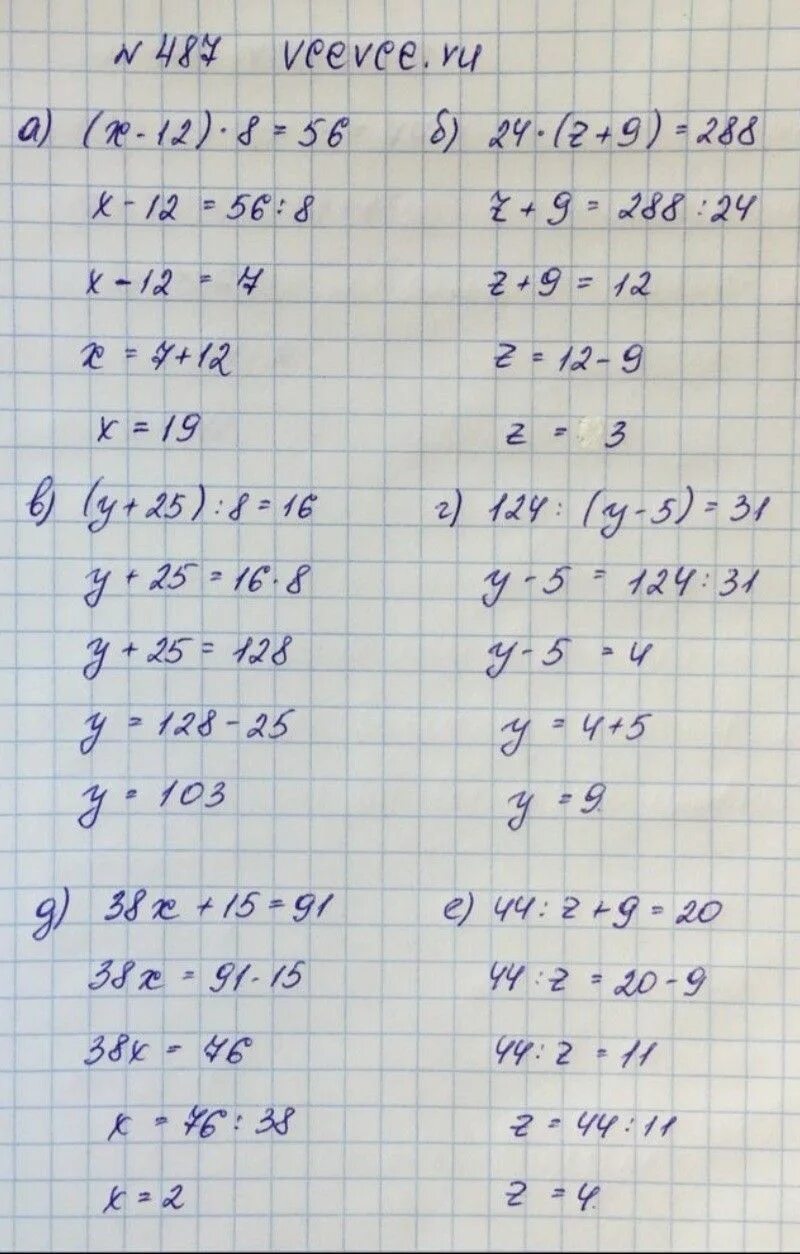 № 487 vcevce.ru
а) (x - 12) · 8 = 56
x - 12 = 56 : 8
x - 12 = 7
x = 7 + 12
x = 19
б) 24 · (z + 9) = 288
z + 9 = 288 : 24
z + 9 = 12
z = 12 - 9
z = 3
в) (y + 25) : 8 = 16
y + 25 = 16 · 8
y + 25 = 128
y = 128 - 25
y = 103
г) 124 : (y - 5) = 31
y - 5 = 124 : 31
y - 5 = 4
y = 4 + 5
y = 9
д) 38x + 15 = 91
38x = 91 - 15
38x = 76
x = 76 : 38
x = 2
е) 44 : z + 9 = 20
44 : z = 20 - 9
44 : z = 11
z = 44 : 11
z = 4